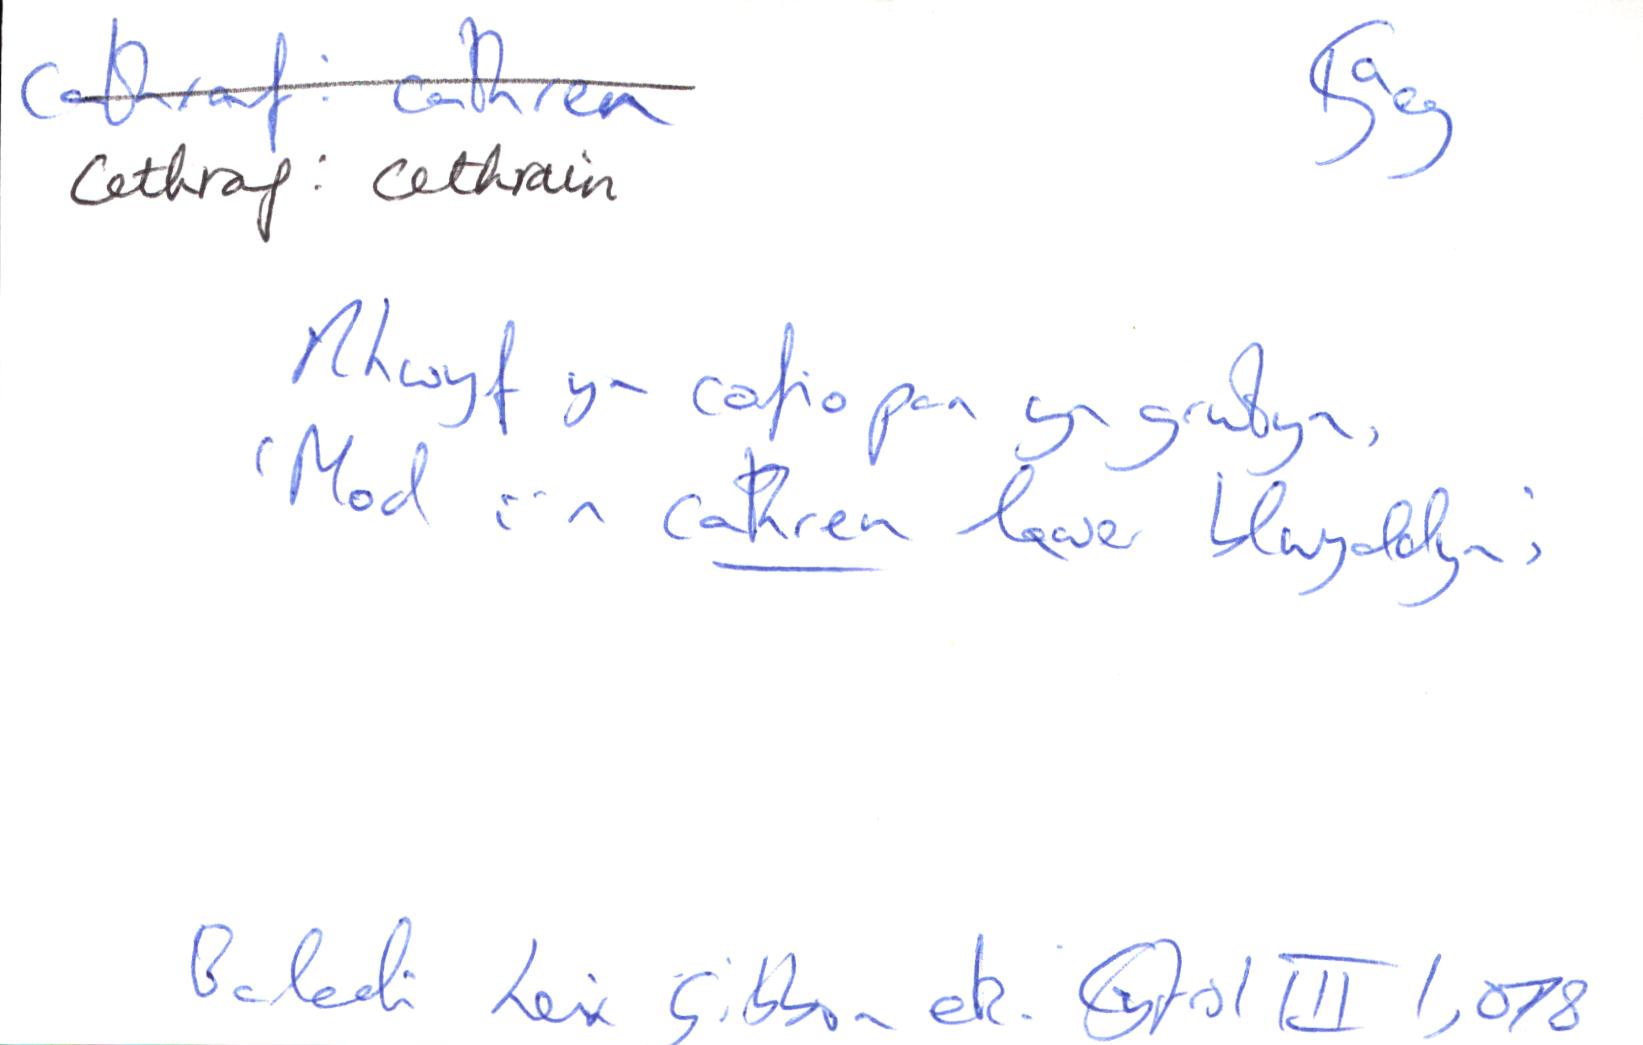 cathraf: cathren
cethraf: cethrain
Rhwyf yn cofio pan yn grwtyn,
'Mod i'n cathren lawer blwyddyn;
Baledi Leix Gibbon etc. Cyfrol III 1,078